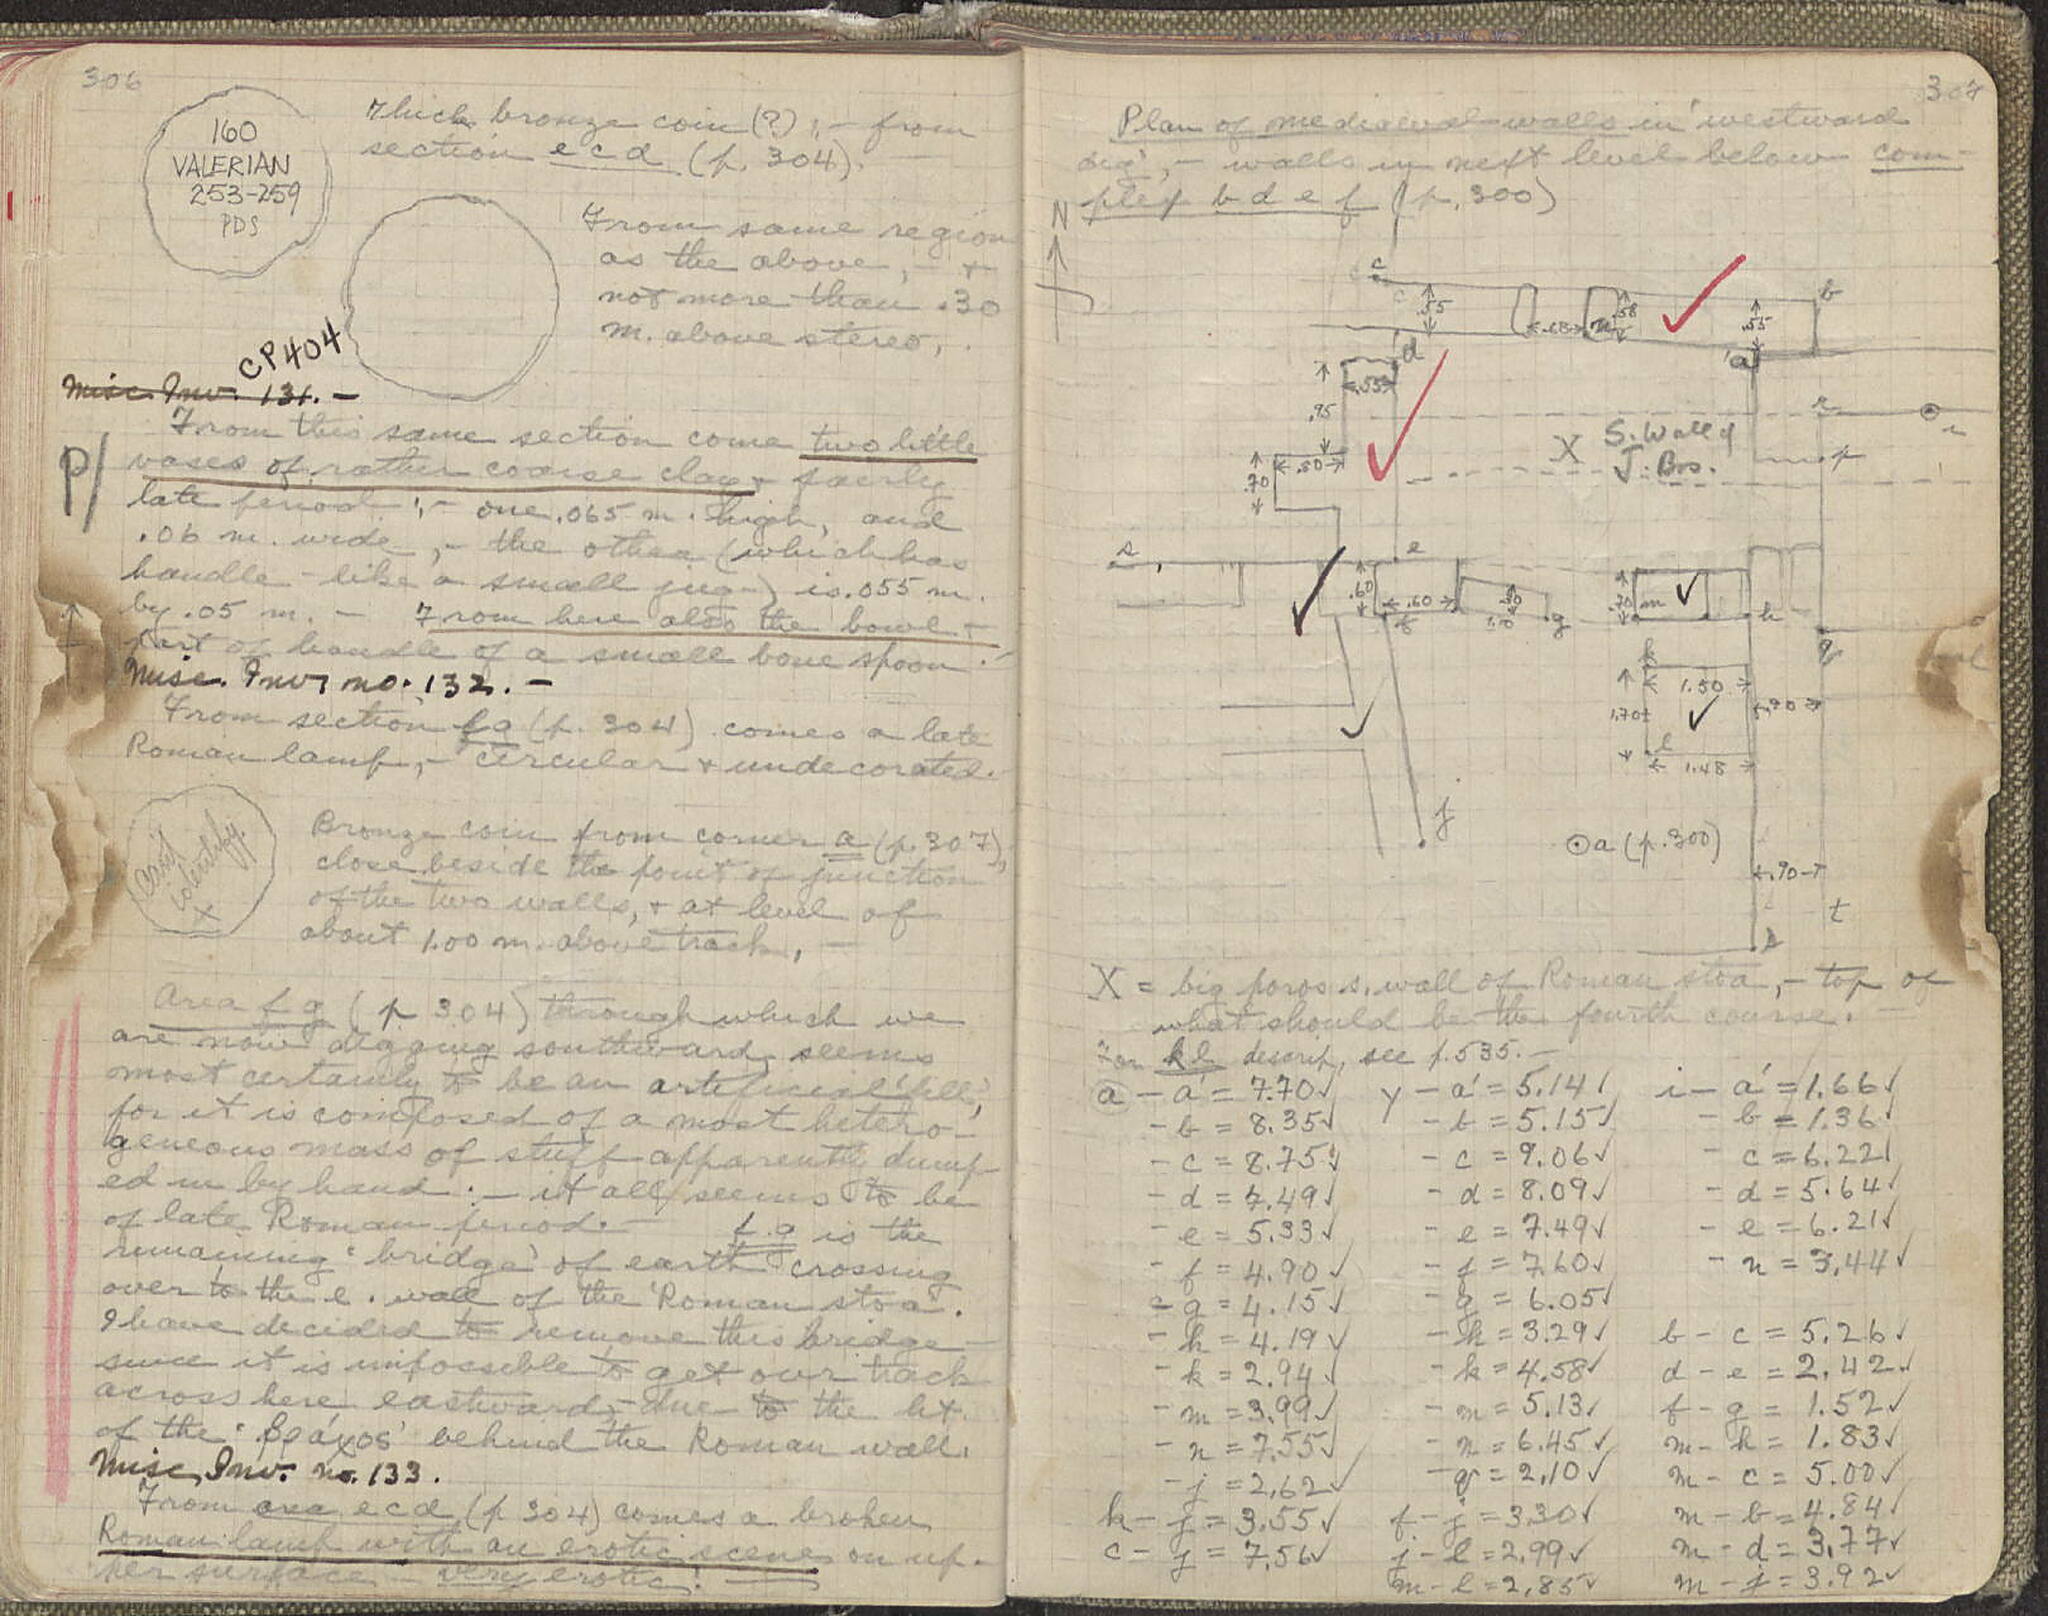 306
160
VALERIAN
253-259
PDS
Thick bronze coin (?); - from
section e c d (p. 304).
From same region
as the above, - +
not more than .30
m. above stereo, .
CP404
Misc. Inv. 131. -
P/
From this same section come two little
vases of rather coarse clay + fairly
late period ; - one .065 m. high, and
.06 m. wide, - the other (which has
handle - like a small jug -) is .055 m.
by .05 m. - From here also the bowl +
part of handle of a small bone spoon. -
Misc. Inv. no. 132. -
From section f g (p. 304) comes a late
Roman lamp, - circular + undecorated. -
can't
identify.
X
Bronze coin from corner a (p. 307),
close beside the point of junction
of the two walls, + at level of
about 1.00 m. above track, -
Area f g (p 304) through which we
are now digging southward, seems
most certainly to be an artificial 'fill',
for it is composed of a most hetero-
geneous mass of stuff apparently dump-
ed in by hand : - it all seems to be
of late Roman period. - f g is the
remaining 'bridge' of earth crossing
over to the l. wall of the Roman stoa.
I have decided to remove this bridge -
since it is impossible to get our track
across here eastward, - due to the ht.
of the 'βράχος' behind the Roman wall.
Misc. Inv. no. 133.
From area e c d (p 304) comes a broken
Roman lamp with an erotic scene on up-
per surface - very erotic! -
307
Plan of mediaeval walls in 'westward
dig', - walls in next level below com-
plex b d e f (p. 300)
N
c
c
.55
.68
n
.58
.55
b
a'
d
.55
.95
r
i
X
S. Wall of
J. Bros.
p
.80
.70
s
e
.60
.60
f
.30
1.10
g
.70
m
h
q
k
1.50
1.70
.90
l
1.48
j
a (p. 300)
.90
t
s
X = big poros s. wall of Roman stoa, - top of
what should be the fourth course. -
For kl descrip, see p. 535. -
a - a' = 7.70✓ y - a' = 5.14✓ i - a' = 1.66✓
- b = 8.35✓ - b = 5.15✓ - b = 1.36✓
- c = 8.75✓ - c = 9.06✓ - c = 6.22✓
- d = 7.49✓ - d = 8.09✓ - d = 5.64✓
- e = 5.33✓ - e = 7.49✓ - e = 6.21✓
- f = 4.90✓ - f = 7.60✓ - n = 3.44✓
- g = 4.15✓ - g = 6.05✓
- h = 4.19✓ - h = 3.29✓ b - c = 5.26✓
- k = 2.94✓ - k = 4.58✓ d - e = 2.42✓
- m = 3.99✓ - m = 5.13✓ f - g = 1.52✓
- n = 7.55✓ - n = 6.45✓ m - h = 1.83✓
- j = 2.62✓ - q = 2.10✓ m - c = 5.00✓
k - j = 3.55✓ f - j = 3.30✓ m - b = 4.84✓
c - j = 7.56✓ j - l = 2.99✓ m - d = 3.77✓
m - l = 2.85✓ m - j = 3.92✓